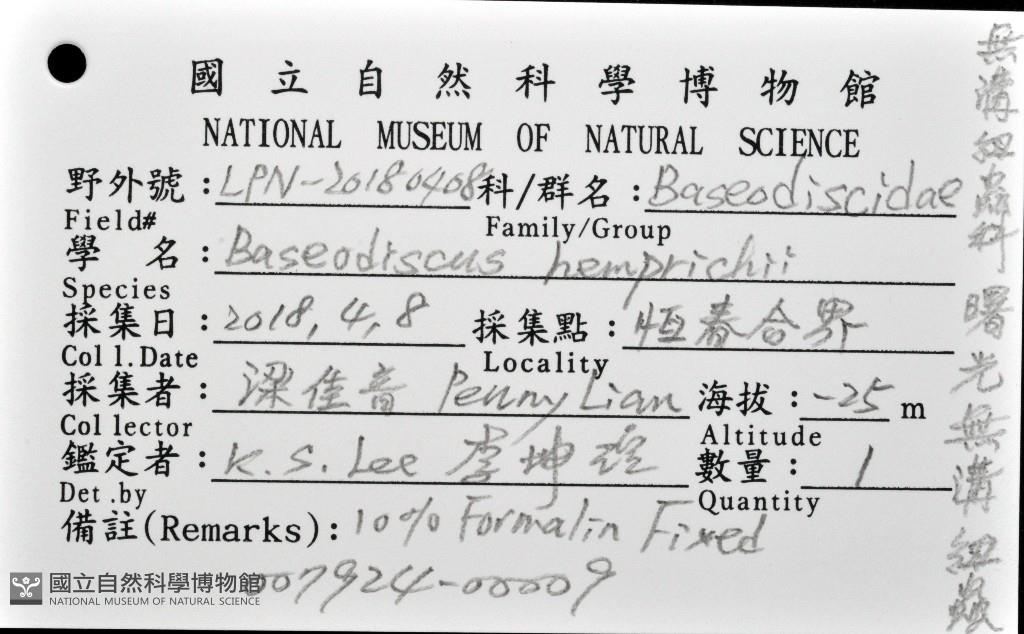 國立自然科學博物館
NATIONAL MUSEUM OF NATURAL SCIENCE
野外號：LPN-20180408 科/群名：Baseodiscidae
Field# Family/Group
學 名：Baseodiscus hemprichii
Species
採集日：2018,4,8 採集點：恆春合界
Coll.Date Locality
採集者：梁佳音 Penny Lian 海拔：-25 m
Collector Altitude
鑑定者：K.S. Lee 李坤瑄 數量：1
Det.by Quantity
備註(Remarks)：10% Formalin Fixed
007924-00009
國立自然科學博物館
NATIONAL MUSEUM OF NATURAL SCIENCE
無溝紐蟲科 曙光無溝紐蟲